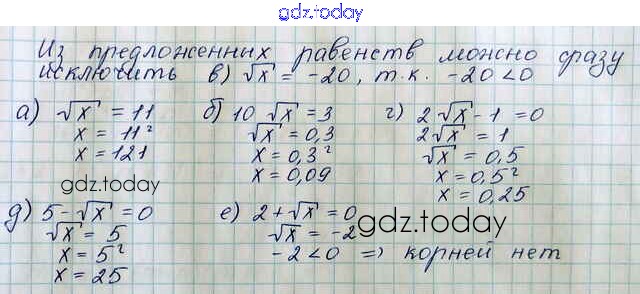 gdz.today
Из предложенных равенств можно сразу
исключить в) √x = -20, т.к. -20<0
а) √x = 11
x = 11²
x = 121
б) 10 √x = 3
√x = 0,3
x = 0,3²
x = 0,09
г) 2√x - 1 = 0
2√x = 1
√x = 0,5
x = 0,5²
x = 0,25
gdz.today
д) 5-√x = 0
√x = 5
x = 5²
x = 25
е) 2+√x = 0
√x = -2
-2<0 => корней нет
gdz.today